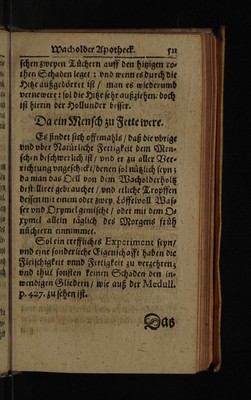 Wacholder Apotheck. 511
schen zweyen Tüchern auff den hitzigen ro-
then Schaden leget: vnd wenn es durch die
Hitze außgedörret ist / man es wiederumb
vernewere: sol die Hitze sehr außziehen / doch
ist hierin der Hollunder besser.
Da ein Mensch zu Fette were.
Es findet sich offtmahls / daß die vbrige
vnd vber Natürliche Fettigkeit dem Men-
schen beschwerlich ist / vnd er zu aller Ver-
richtung vngeschickt / denen sol nützlich seyn:
da man das Oell von dem Wacholderholtz
destilliret gebrauchet / vnd etliche Tropffen
dessen mit einem oder zwey Löffelvoll Was-
ser vnd Oxymel gemischt / oder mit dem O-
xymel allein täglich des Morgens früh
nüchtern einnimmet.
Sol ein treffliches Experiment seyn /
vnd eine sonderliche Eigenschafft haben die
Fleischigkeit vnnd Fettigkeit zu verzehren;
vnd thut sonsten keinen Schaden den in-
wendigen Gliedern / wie auß der Medull.
p. 427. zu sehen ist.
Das